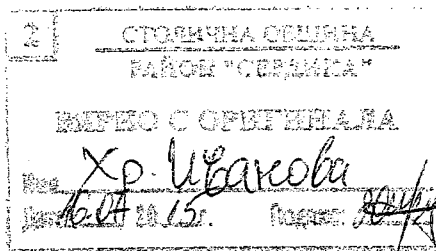 2
СТОЛИЧНА ОБЩИНА
РАЙОН "СЕРДИКА"
ВЯРНО С ОРИГИНАЛА
Име Хр. Иванова
Дата 16.07 2015г. Подпис: